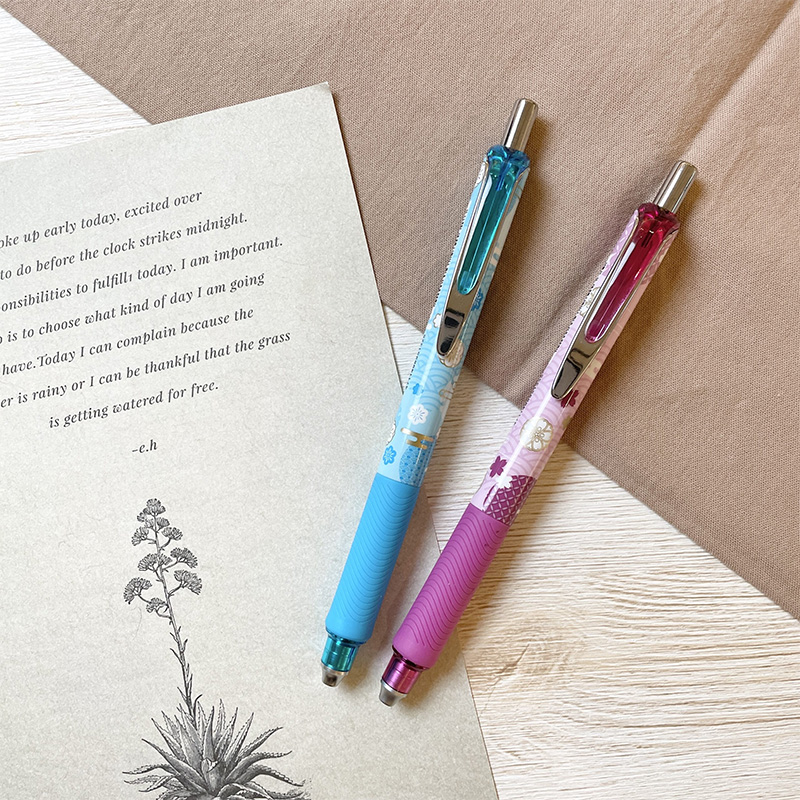 oke up early today, excited over
to do before the clock strikes midnight.
onsibilities to fulfill1 today. I am important.
is to choose what kind of day I am going
have.Today I can complain because the
er is rainy or I can be thankful that the grass
is getting watered for free.
-e.h